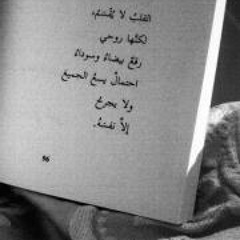 القلبُ لا يُقسَمُ،
لكنَّها روحي
رقعٌ بيضاءُ وسوداءُ
احتمالٌ يسعُ الجميع
ولا يجرحُ
إلّا نفسَهُ.
96